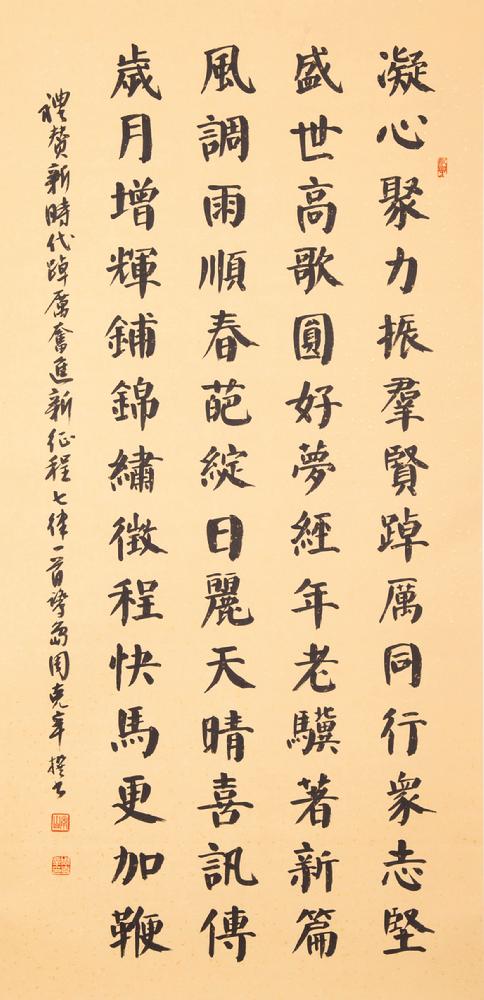 凝心聚力振羣賢踔厲同行衆志堅
盛世高歌圓好夢經年老驥著新篇
風調雨順春葩綻日麗天晴喜訊傳
歲月增輝鋪錦繡徵程快馬更加鞭
禮贊新時代踔厲奮進新征程七律一首琴島周克年撰書